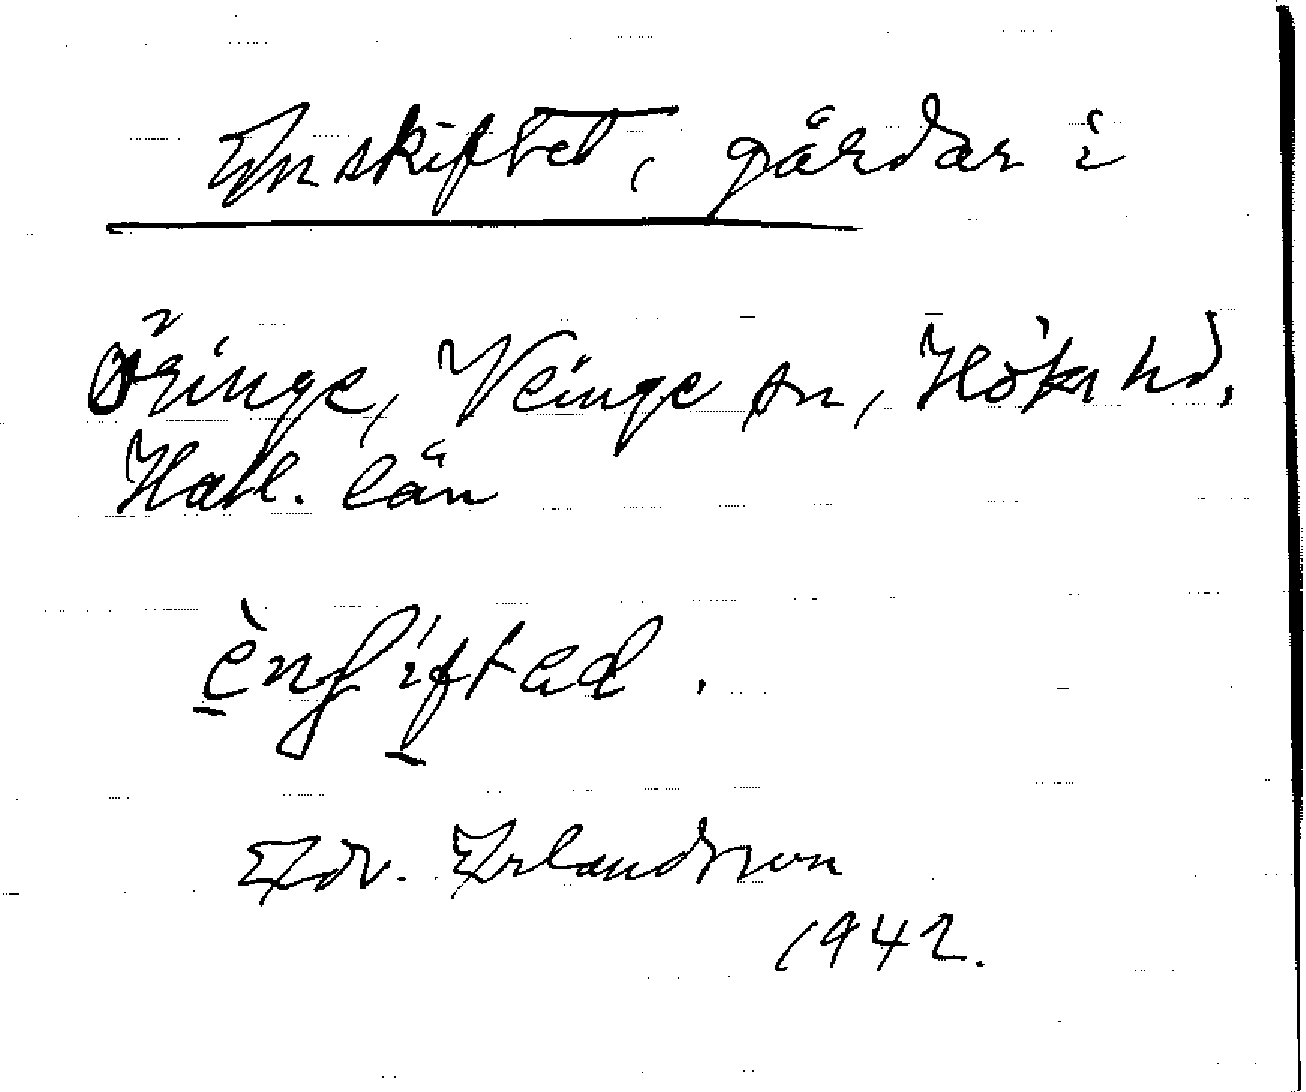 Enskiftet, gårdar i
Öringe, Veinge sn, Höks hd,
Hall. län
ènʃiftəd.
Edv. Erlandsson
1942.